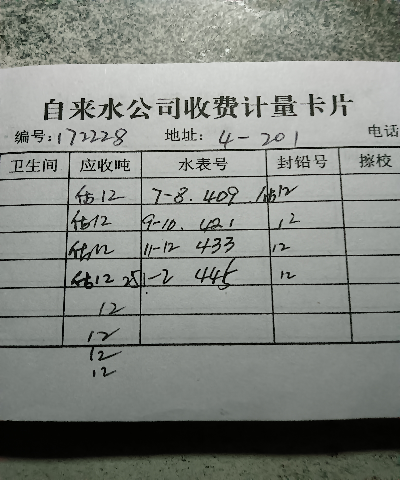 自来水公司收费计量卡片
编号:172228 地址: 4-201 电话
卫生间 应收吨 水表号 封铅号 擦校
估12 7-8. 409 估12
估12 9-10. 421 12
估12 11-12 433 12
估12 25 1-2 445 12
12
12
12
12